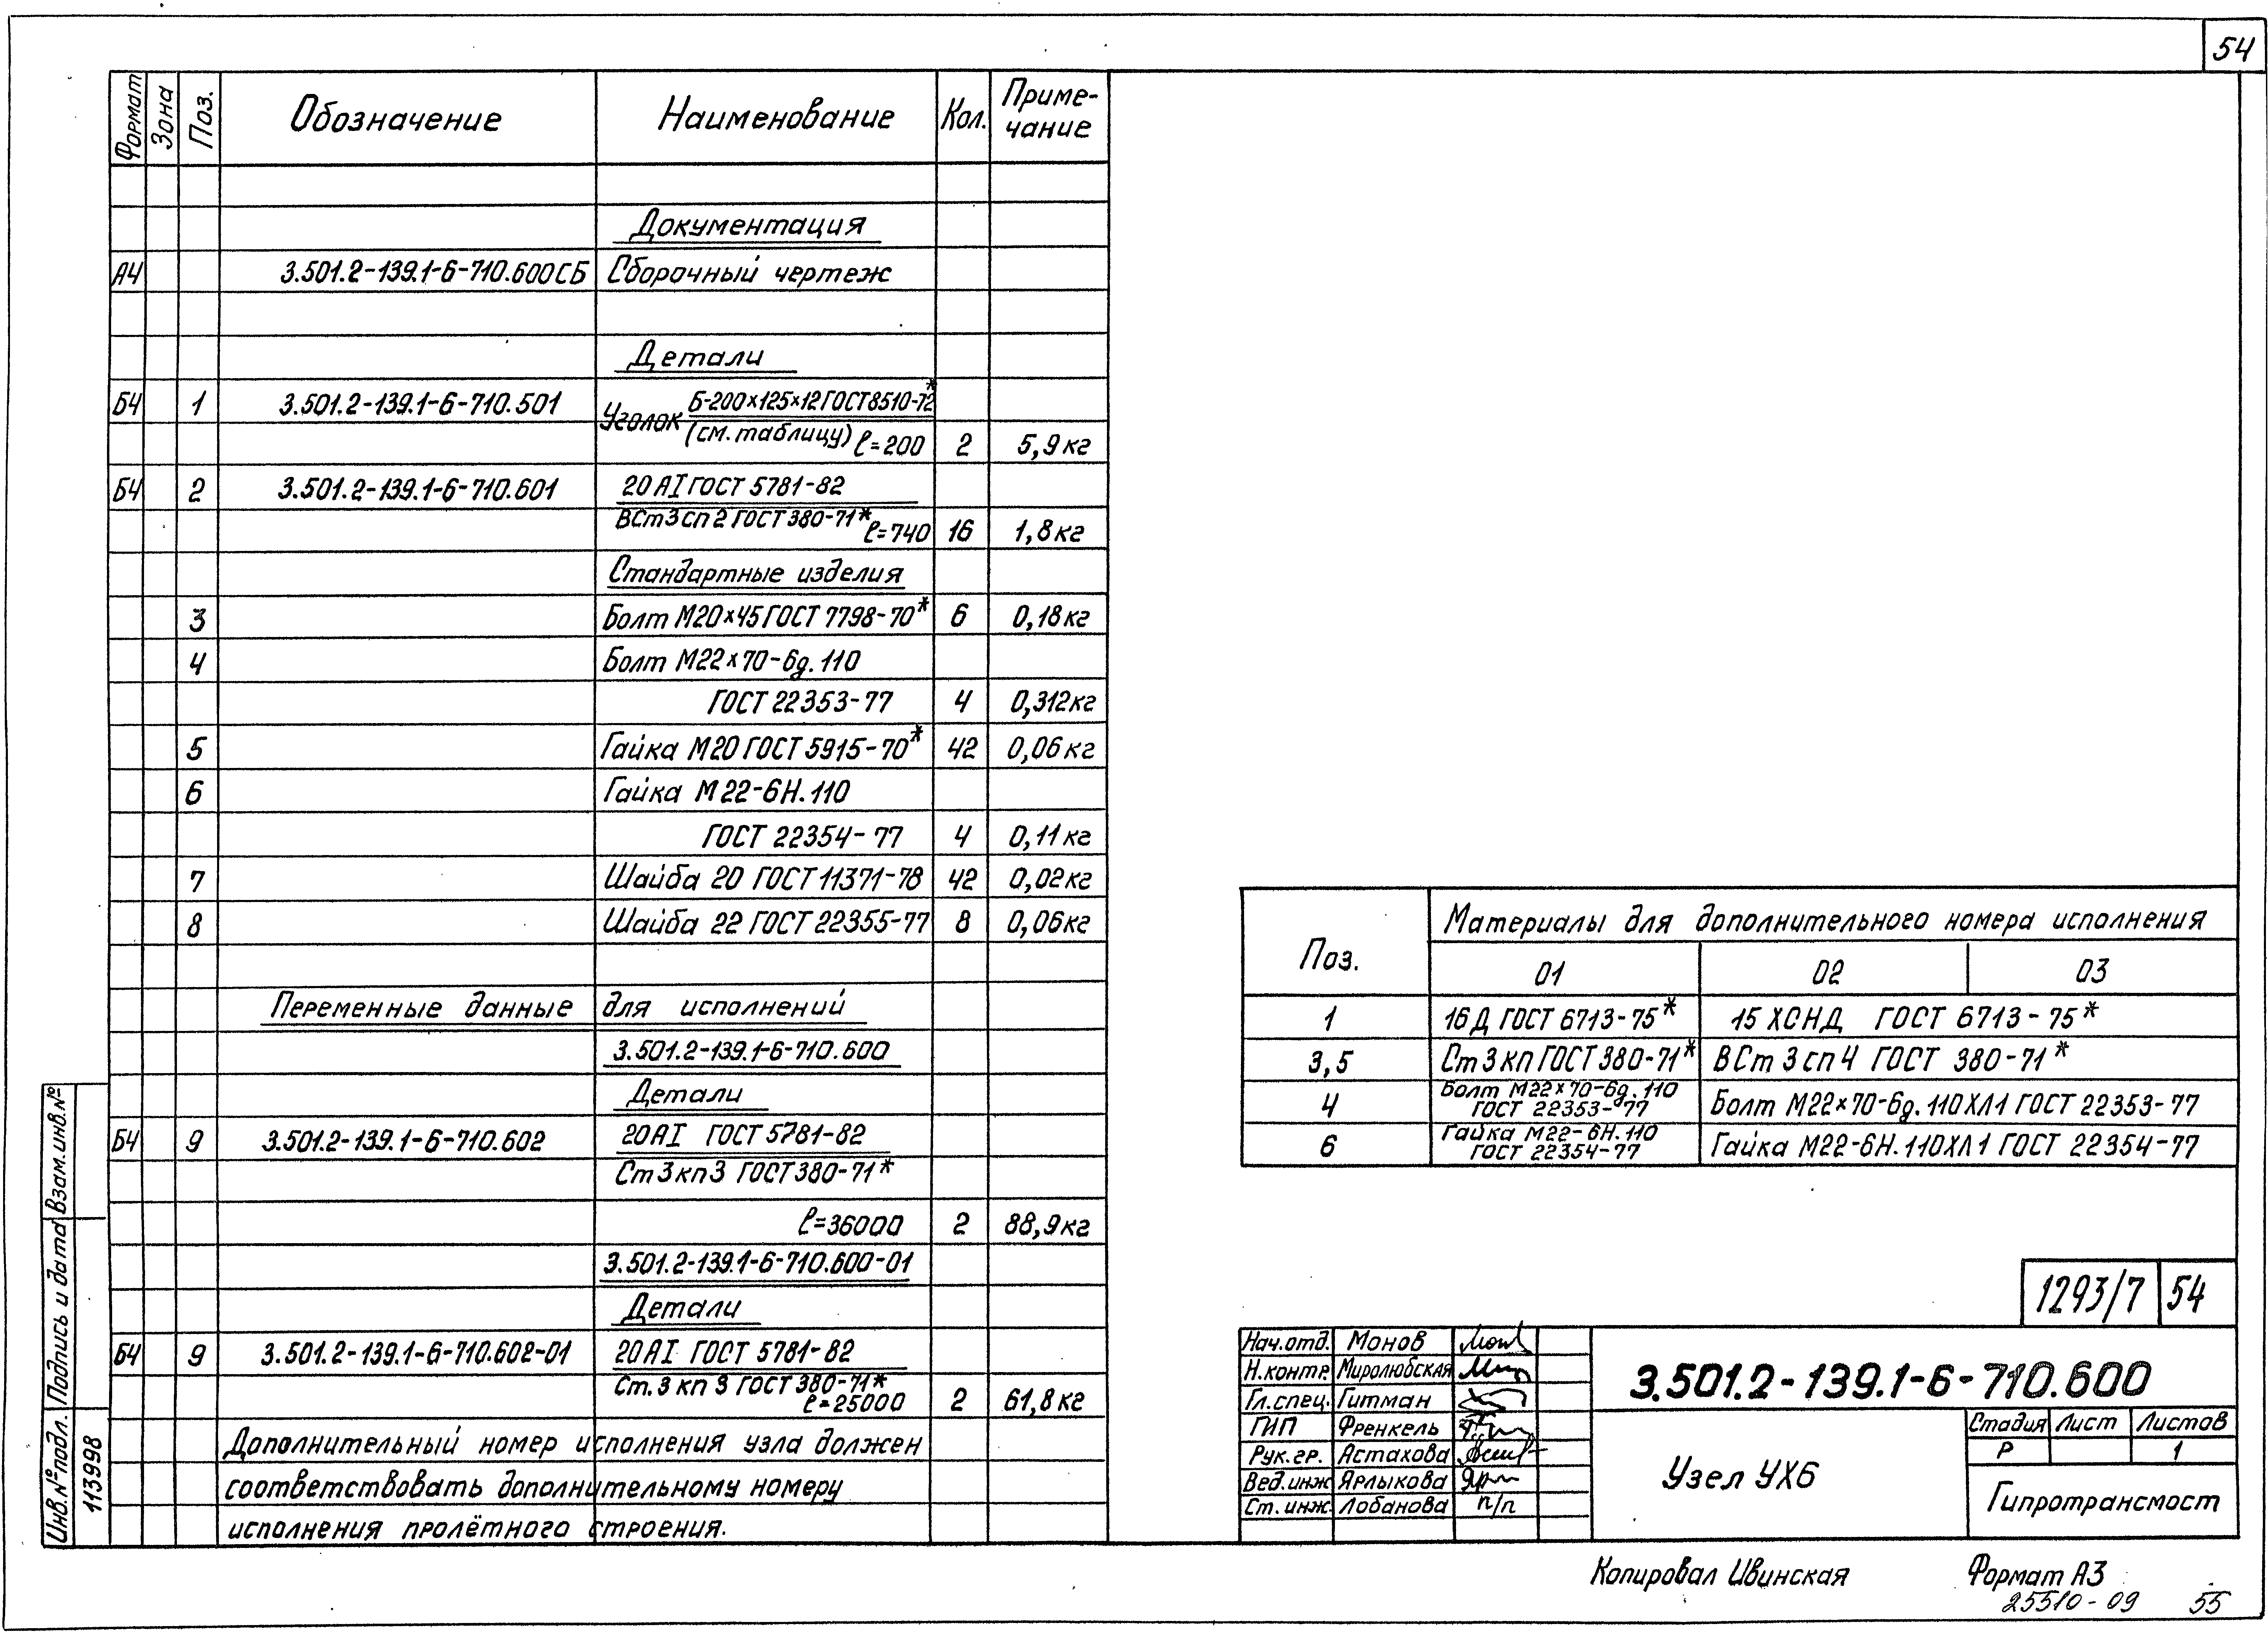 54
Формат Зона Поз. Обозначение Наименование Кол. Приме-
чание
Документация
А4 3.501.2-139.1-6-710.600СБ Сборочный чертеж
Детали
Б4 1 3.501.2-139.1-6-710.501 Уголок Б-200×125×12 ГОСТ 8510-72*
(см. таблицу) ℓ=200 2 5,9кг
Б4 2 3.501.2-139.1-6-710.601 20 АI ГОСТ 5781-82
ВСт3сп2 ГОСТ 380-71* ℓ=740 16 1,8кг
Стандартные изделия
3 Болт М20×45 ГОСТ 7798-70* 6 0,18кг
4 Болт М22×70-6g.110
ГОСТ 22353-77 4 0,312кг
5 Гайка М20 ГОСТ 5915-70* 42 0,06кг
6 Гайка М22-6Н.110
ГОСТ 22354-77 4 0,11кг
7 Шайба 20 ГОСТ 11371-78 42 0,02кг
8 Шайба 22 ГОСТ 22355-77 8 0,06кг
Переменные данные для исполнений
3.501.2-139.1-6-710.600
Детали
Б4 9 3.501.2-139.1-6-710.602 20АI ГОСТ 5781-82
Ст3кп3 ГОСТ 380-71*
ℓ=36000 2 88,9кг
3.501.2-139.1-6-710.600-01
Детали
Б4 9 3.501.2-139.1-6-710.602-01 20АI ГОСТ 5781-82
Ст.3 кп 3 ГОСТ 380-71*
ℓ=25000 2 61,8кг
Дополнительный номер исполнения узла должен
соответствовать дополнительному номеру
исполнения пролётного строения.
Инв.№подл. Подпись и дата Взам.инв.№
113998
Поз. Материалы для дополнительного номера исполнения
01 02 03
1 16Д ГОСТ 6713-75* 15 ХСНД ГОСТ 6713-75*
3,5 Ст3кп ГОСТ 380-71* ВСт3сп4 ГОСТ 380-71*
4 Болт М22×70-6g.110
ГОСТ 22353-77 Болт М22×70-6g.110ХЛ1 ГОСТ 22353-77
6 Гайка М22-6Н.110
ГОСТ 22354-77 Гайка М22-6Н.110ХЛ1 ГОСТ 22354-77
1293/7 54
Нач.отд. Монов
Н.контр. Миролюбская
Гл.спец. Гитман
ГИП Френкель
Рук.гр. Астахова
Вед.инж Ярлыкова
Ст.инж. Лобанова п/п
3.501.2-139.1-6-710.600
Узел УХ6
Стадия Лист Листов
Р 1
Гипротрансмост
Копировал Ивинская Формат А3
25510-09 55